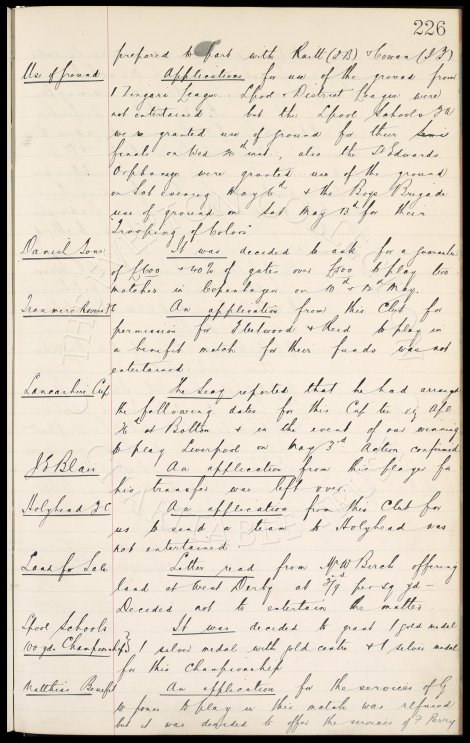 226
prepared to part with Raitt (J D) & Cowan (J J)
Use of Ground
Applications for use of the ground from
I Zingari League. Lpool & District League were
not entertained. but the Lpool Schools FA
were granted use of ground for their Semi
finals on Wed inst, also the St Edwards
Orphanage were granted use of the ground
on Sat evening May 6th & the Boys Brigade
use of ground on Sat May 13th for their
"Trooping of Colors"
Danish Tour
It was decided to ask for a guarantee
of £600 & 40% of gates over £500 to play two
matches in Copenhagen on 10th & 12th May.
Tranmere Rovers FC
An application from this Club for
permission for Fleetwood & Reid to play in
a benefit match for their funds was not
entertained.
Lancashire Cup
The Secy reported that he had arranged
the following dates for this Cup tie eg Apl
26th at Bolton & in the event of our winning
to play Liverpool on May 3rd Action confirmed
J E Blair
An application from this player for
his transfer was left over.
Holyhead F C
An application from this Club for
us to send a team to Holyhead was
not entertained
Land for Sale
Letter read from Mr W Birch offering
land at West Derby at 3/9d per sq yd -
Decided not to entertain the matter.
Lpool Schools
100 yds Championship
It was decided to grant 1 gold medal
1 silver medal with gold centre & 1 silver medal
for this Championship
Matthias Benefit
An application for the services of G
to Jones to play in this match was refused
but it was decided to offer the services of F Parry